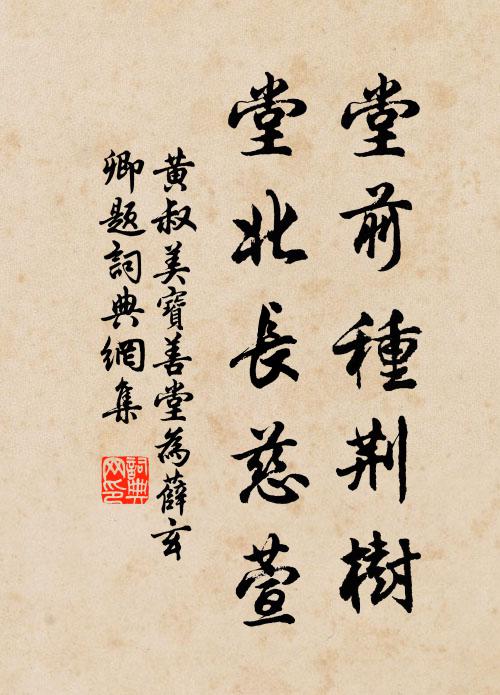 堂前種荆樹
堂北長慈萱
黄叔美寶善堂為薛玄
卿題詞典網集
詞典
网印